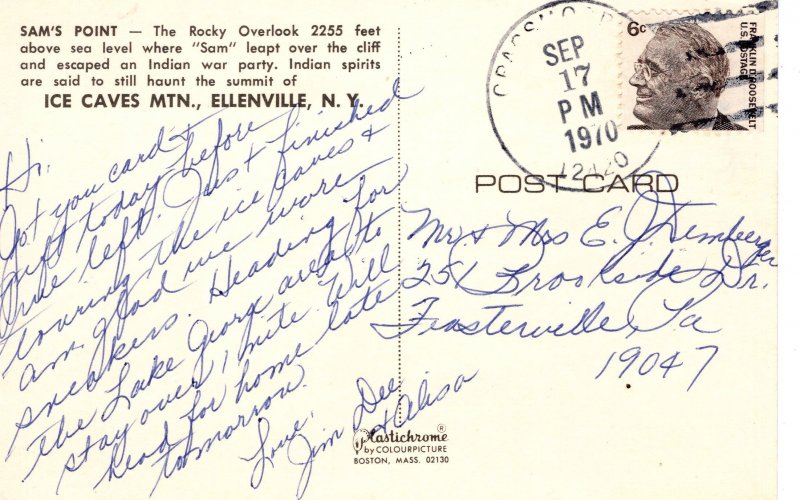 SAM'S POINT — The Rocky Overlook 2255 feet
above sea level where "Sam" leapt over the cliff
and escaped an Indian war party. Indian spirits
are said to still haunt the summit of
ICE CAVES MTN., ELLENVILLE, N. Y.
Hi.
Got you card &
gift today before
we left. Just finished
touring the ice caves &
am glad we wore
sneakers. Heading for
the Lake George area to
stay over 1 nite. Will
head for home late
tomorrow.
Love,
Jim Dee
& Alisa
SEP
17
PM
1970
12420
6c
FRANKLIN D. ROOSEVELT
U.S. POSTAGE
POST CARD
Mr. & Mrs E. J. Demberger
251 Brookside Dr.
Feasterville, Pa
19047
Plastichrome®
by COLOURPICTURE
BOSTON, MASS. 02130